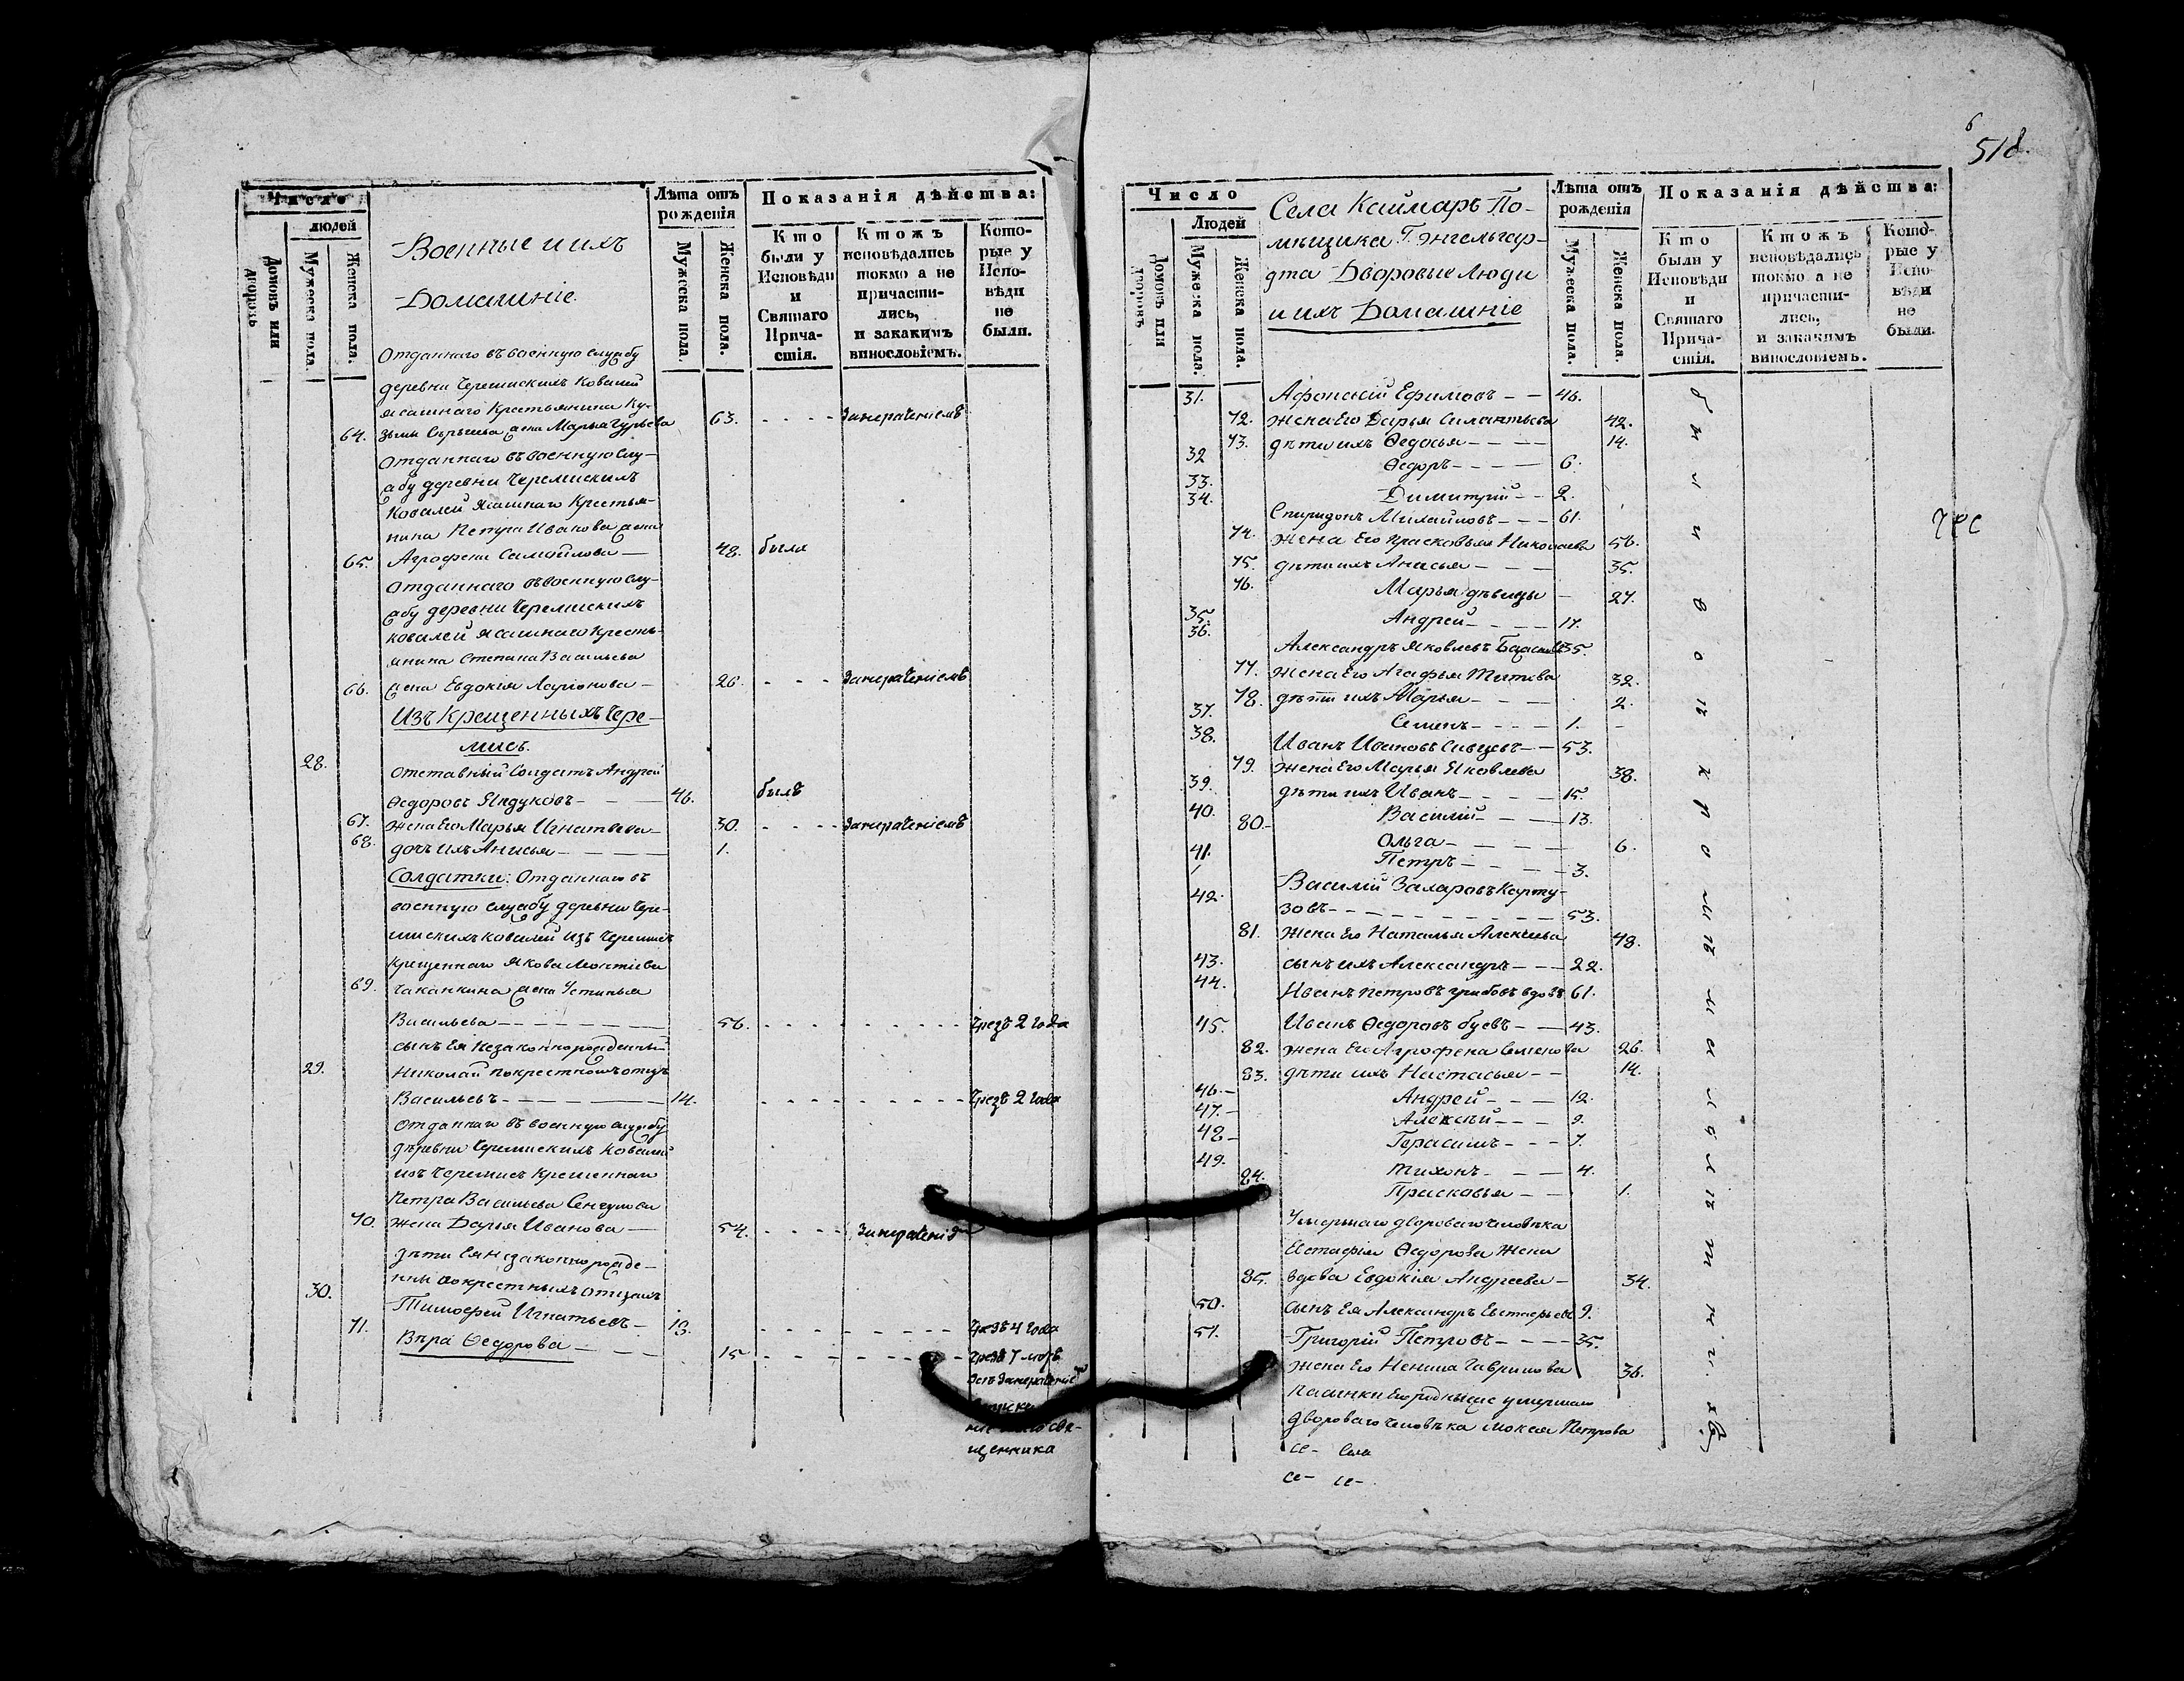 Число
людей
Домовъ или дворовъ
Мужеска пола.
Женска пола.
Военные и ихъ
Домашніе.
Лѣта отъ рожденія
Мужеска пола.
Женска пола.
Показанія дѣйства:
Кто были у Исповѣди и Святаго Причастія.
Ктожъ исповѣдались токмо а не причастились, и закакимъ винословіемъ.
Которые у Исповѣди не были.
Отданнаго въ военную службу
деревни Черемискихъ Ковалей
ясашнаго Крестьянина Ку-
64. жена Марья Гурьева 63. - - - - занераченіемъ
Отданнаго въ военную слу-
жбу деревни Черемискихъ
Ковалей Ясашнаго Крестья-
нина Петра Иванова жена
65. Агрофена Самойлова — 48. была
Отданнаго въ военную слу-
жбу деревни Черемискихъ
Ковалей Ясашнаго Кресть-
янина Степана Васильева
66. жена Евдокія Ларіонова — 26. - - - занераченіемъ
Изъ Крещенныхъ Чере-
мисъ.
28. Отставный Солдатъ Андрей
Ѳедоровъ Яндуковъ - - — 46. былъ
67. Жена Его Марья Игнатьева — 30. - - - - занераченіемъ
68. дочь ихъ Анисья - — — — 1.
Солдатки: Отданнаго въ
военную службу деревни Чере-
мискихъ Ковалей изъ Черемисъ
Крещеннаго Якова Леонтіева
69. Чаканкина жена Устинья
Васильева — - — - — - — 56. - - - - - - - Чрезъ 2 года
сынъ Ея Незаконнорожденный
29. Николай по крестномъ отцѣ
Васильевъ - — — — — — 14. - - - - - - - Чрезъ 2 года
Отданнаго въ военную службу
деревни Черемискихъ Ковалей
изъ Черемисъ Крещеннаго
Петра Васильева
70. Жена Дарья Иванова — 54. - - - - занераченіе
дѣти Ея незаконнорожде-
нны по крестныхъ отцахъ
30. Тимофей Игнатьевъ - 19. - - - - - - - Чрезъ 4 года
71. Вѣра Ѳедорова — — — 15 - - - - - - - Чрезъ 7 лѣтъ
священника
6
518.
Число
Людей
Домовъ или дворовъ
Мужеска пола.
Женска пола.
Села Каймаръ По-
мѣщика Г. Энгельгар-
дта Дворовые Люди
и ихъ Домашніе
Лѣта отъ рожденія
Мужеска пола.
Женска пола.
Показанія дѣйства:
Кто были у Исповѣди и Святаго Причастія.
Ктожъ исповѣдались токмо а не причастились, и закакимъ винословіемъ.
Которые у Исповѣди не были.
31. Афонасій Ефимовъ — — 46.
72. Жена Его Дарья Силантьева 42.
73. дѣти ихъ Ѳедосья — - - — 14.
32 Ѳедоръ - - - — 6.
33. Димитрій - - 2.
34. Спиридонъ Михайловъ - - - 61.
74. Жена Его Прасковья Николаева 56.
75. дѣти ихъ Анисья - — — 35.
76. Марья дѣвицы — 27.
35. Андрей - - - — 17.
36. Александръ Яковлевъ 35.
77. Жена Его Агафья Титова 32.
78. дѣти ихъ Марья - — — 2.
37. Семенъ - - - — 1.
38. Иванъ Ивановъ Сивцевъ - — 53.
79. Жена Его Марья Яковлева 38.
39. дѣти ихъ Иванъ - — — — 15.
40. Василій - - — 13.
80. Ольга — - — - — 6.
41. Петръ - — - — 3.
42. Василій Захаровъ Карту-
зовъ - - — - - — - — 53.
81. Жена Его Наталья Алексѣева 48.
43. сынъ ихъ Александръ - — - 22.
44. Иванъ Петровъ Грибовъ вдовъ 61.
45. Иванъ Ѳедоровъ Буевъ - — 43.
82. Жена Его Агрофена Семенова 26.
83. дѣти ихъ Настасья — - 14.
46. Андрей - — — 12.
47. Алексѣй - — - 9.
48 Герасимъ - - - 7.
49. Тихонъ - - — 4.
84. Прасковья - — 1.
Умершаго двороваго человѣка
Евстафія Ѳедорова Жена
85. вдова Евдокія Андреева - 34.
50. сынъ Ея Александръ Евстафьевъ 9.
51. Григорій Петровъ - - — — 35.
Жена Его Ненила Гаврилова 36.
Пасынки Его родные умершаго
двороваго человѣка Мокея Петрова